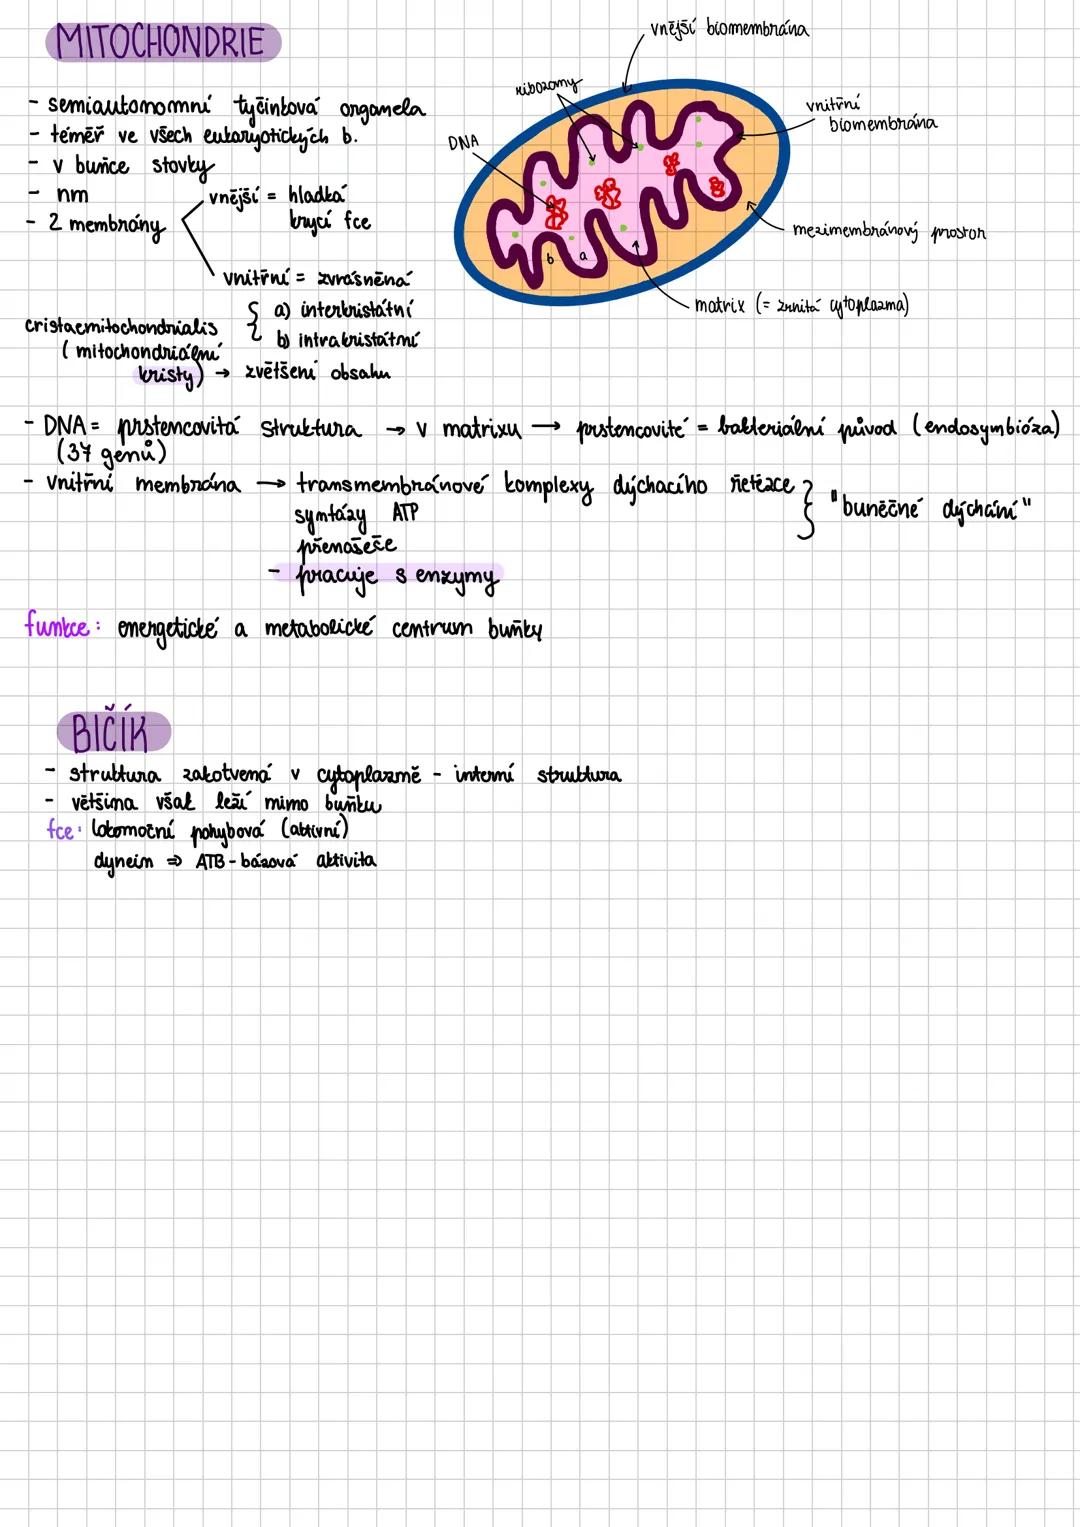 MITOCHONDRIE
vnější biomembrána
ribozomy
vnitřní
biomembrána
DNA
b
a
mezimembránový prostor
matrix (= zrnitá cytoplazma)
- semiautonomní tyčinková organela
- téměř ve všech eukaryotických b.
- v buňce stovky
- nm
- 2 membrány
vnější = hladká
krycí fce
vnitřní = zvrásněná
cristaemitochondrialis { a) interkristátní
(mitochondriální b) intrakristátní
kristy) → zvětšení obsahu
- DNA = prstencovitá struktura → v matrixu → prstencovité = bakteriální původ (endosymbióza)
(37 genů)
- vnitřní membrána → transmembránové komplexy dýchacího řetězce } "buněčné dýchání"
syntázy ATP
přenašeče
- pracuje s enzymy
funkce: energetické a metabolické centrum buňky
BIČÍK
- struktura zakotvená v cytoplazmě - interní struktura
- většina však leží mimo buňku
fce: lokomoční pohybová (aktivní)
dynein ⇒ ATB-bázová aktivita